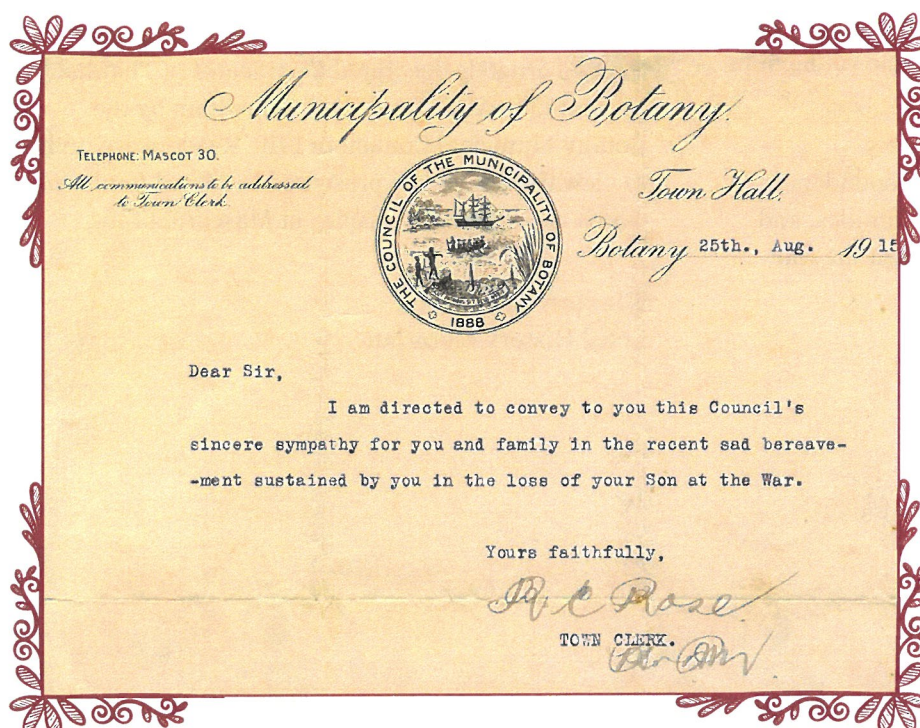 Municipality of Botany.
TELEPHONE: MASCOT 30.
All communications to be addressed
to Town Clerk.
THE COUNCIL OF THE MUNICIPALITY OF BOTANY
1888
Town Hall,
Botany 25th., Aug. 1915
Dear Sir,
I am directed to convey to you this Council's
sincere sympathy for you and family in the recent sad bereave-
-ment sustained by you in the loss of your Son at the War.
Yours faithfully,
R C Rose
TOWN CLERK.